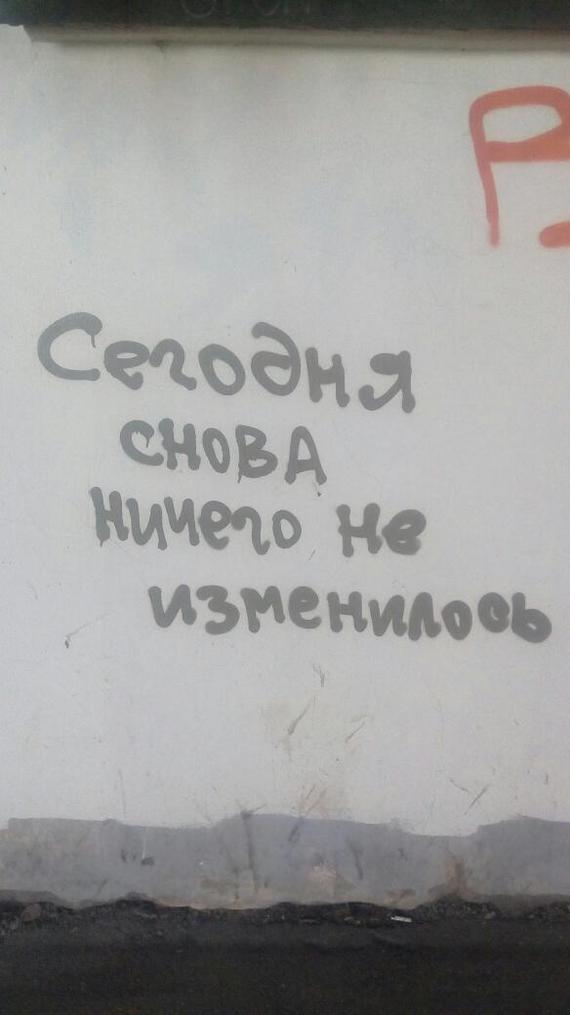 Сегодня
снова
ничего не
изменилось